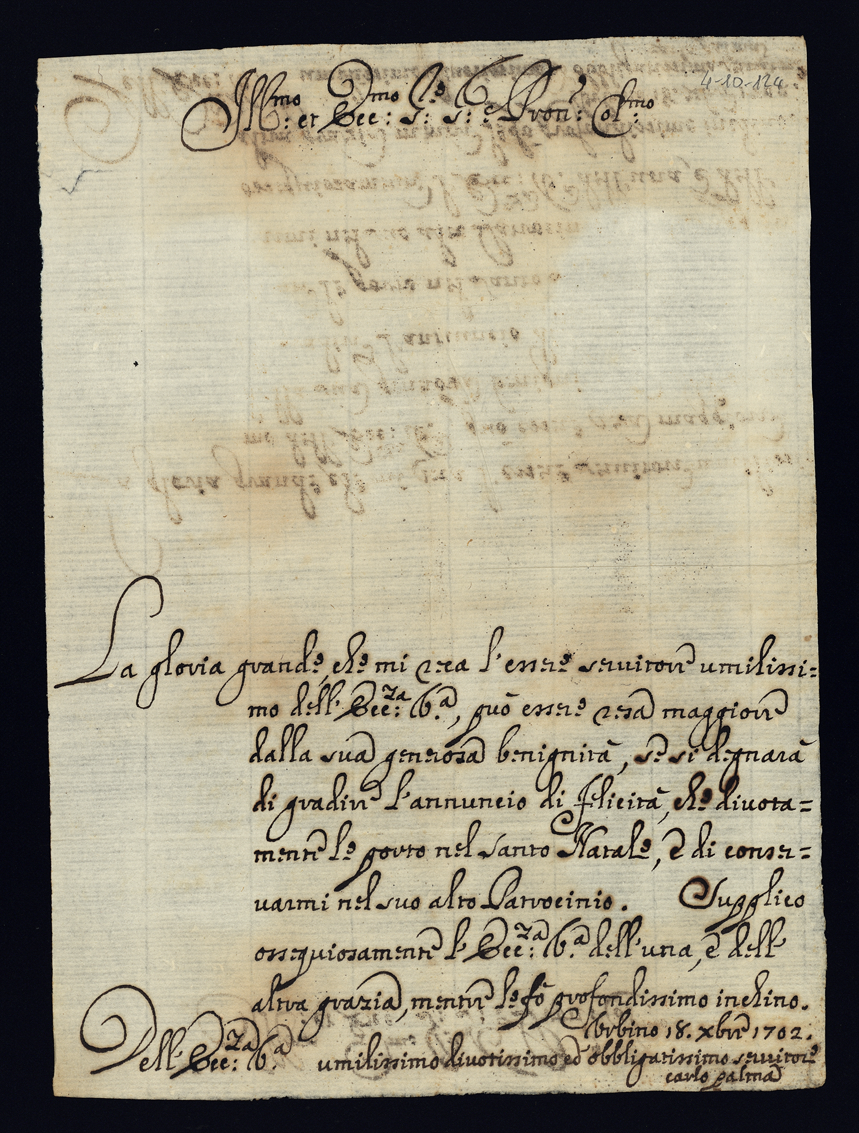 4-10-124
Ill.mo et Ecc.mo S.re S.r e Pron.e Col.mo
La gloria grande, che mi reca l'essere servitore umilissi=
mo dell'Ecc:za V.a, può essere resa maggiore
dalla sua generosa benignità, se si degnarà
di gradire l'annuncio di felicità, che divota=
mente le porto nel santo Natale, è di conser=
varmi nel suo alto Patrocinio. Supplico
ossequiosamente l'Ecc:za V.a dell'una, è dell'
altra grazia, mentre le fò profondissimo inchino.
Urbino 18. Xbre 1702.
Dell'Ecc:za V.a umilissimo divotissimo ed obbligatissimo servitore
Carlo Palma